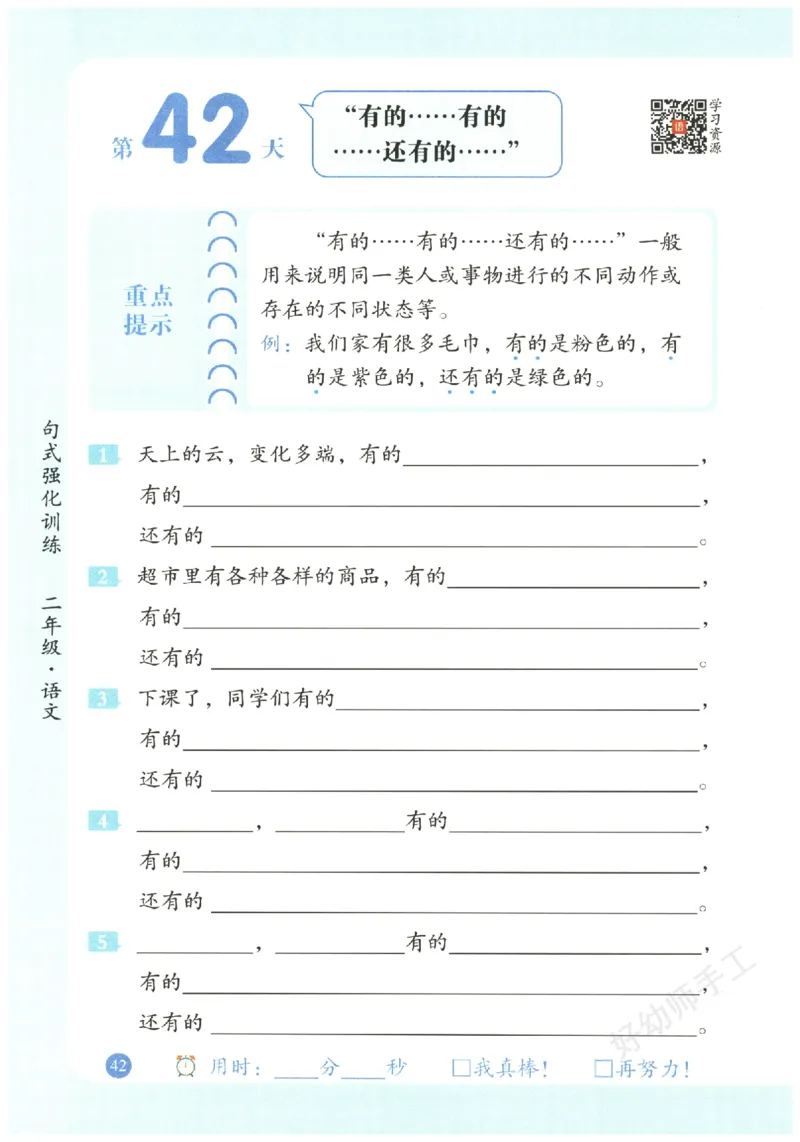 第42天
“有的……有的
……还有的……”
学习资源
语
重点
提示
“有的……有的……还有的……”一般
用来说明同一类人或事物进行的不同动作或
存在的不同状态等。
例：我们家有很多毛巾，有的是粉色的，有
的是紫色的，还有的是绿色的。
句式强化训练 二年级·语文
1 天上的云，变化多端，有的____，
有的____，
还有的____。
2 超市里有各种各样的商品，有的____，
有的____，
还有的____。
3 下课了，同学们有的____，
有的____，
还有的____。
4 ____，____有的____，
有的____，
还有的____。
5 ____，____有的____，
有的____，
还有的____。
好幼师手工
42 用时：____分____秒 □我真棒！ □再努力！